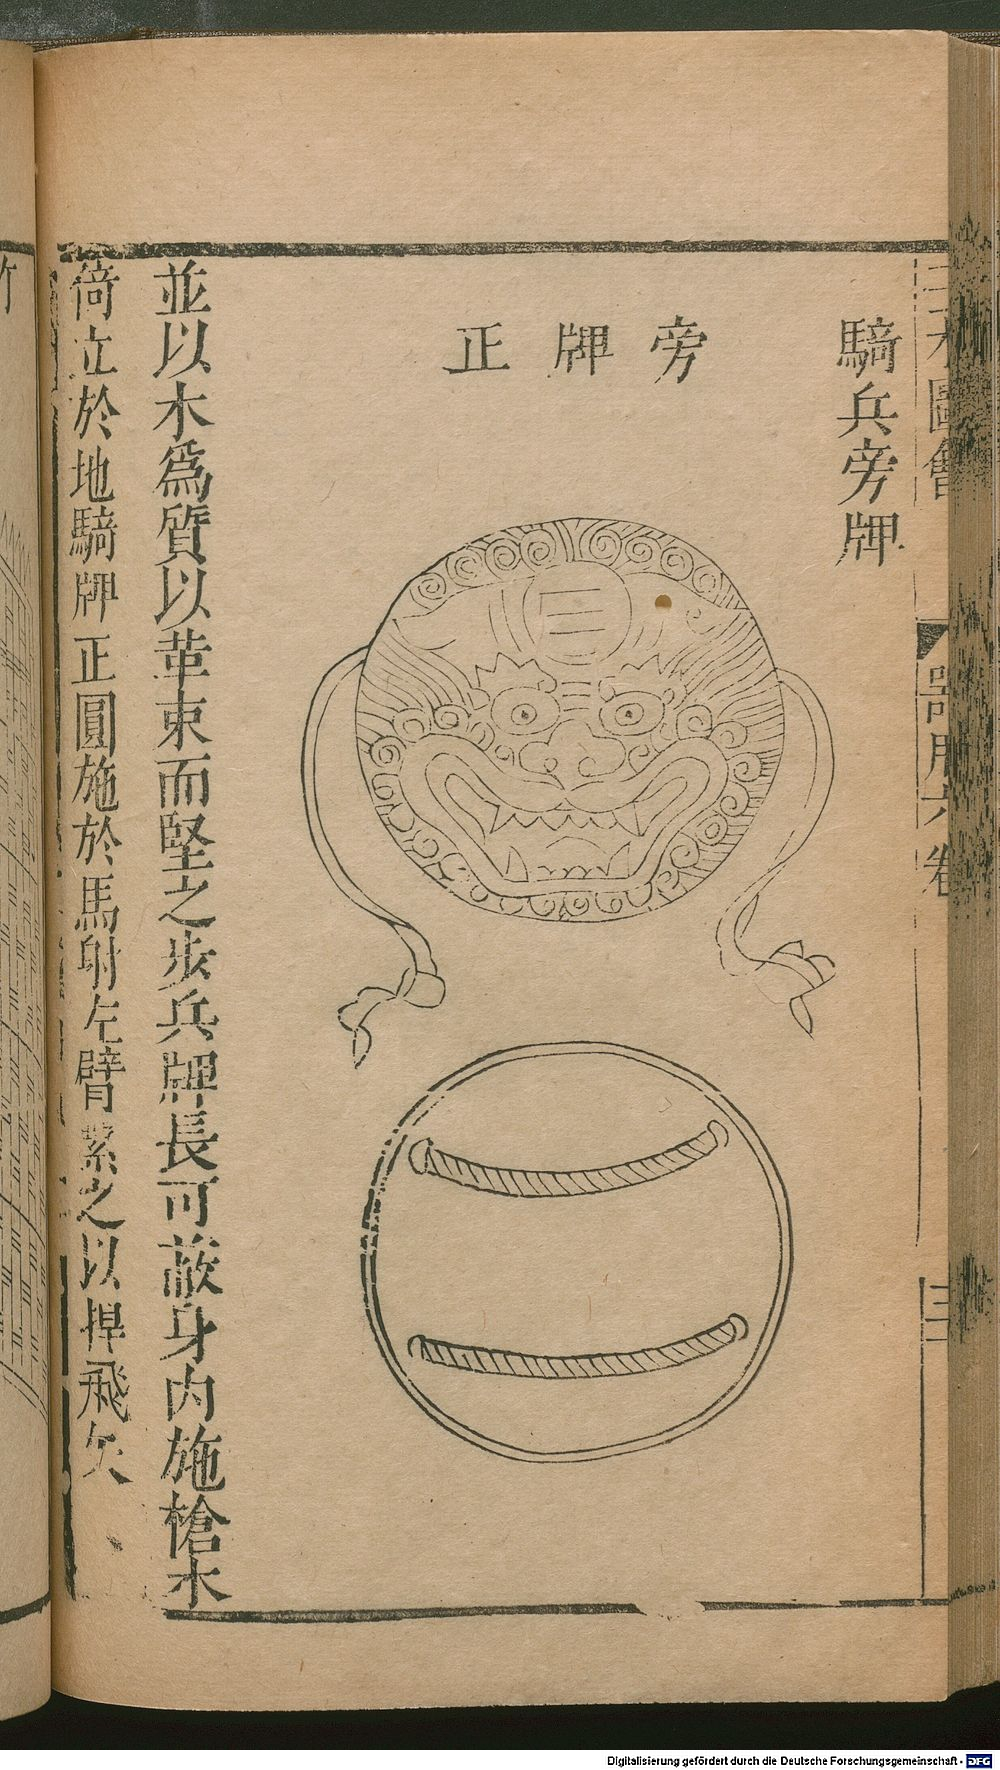 三才圖會
器用六卷
三
騎兵旁牌
旁牌正
並以木爲質以革束而堅之步兵牌長可蔽身內施槍木
倚立於地騎牌正圓施於馬射左臂繫之以捍飛矢
Digitalisierung gefördert durch die Deutsche Forschungsgemeinschaft - DFG